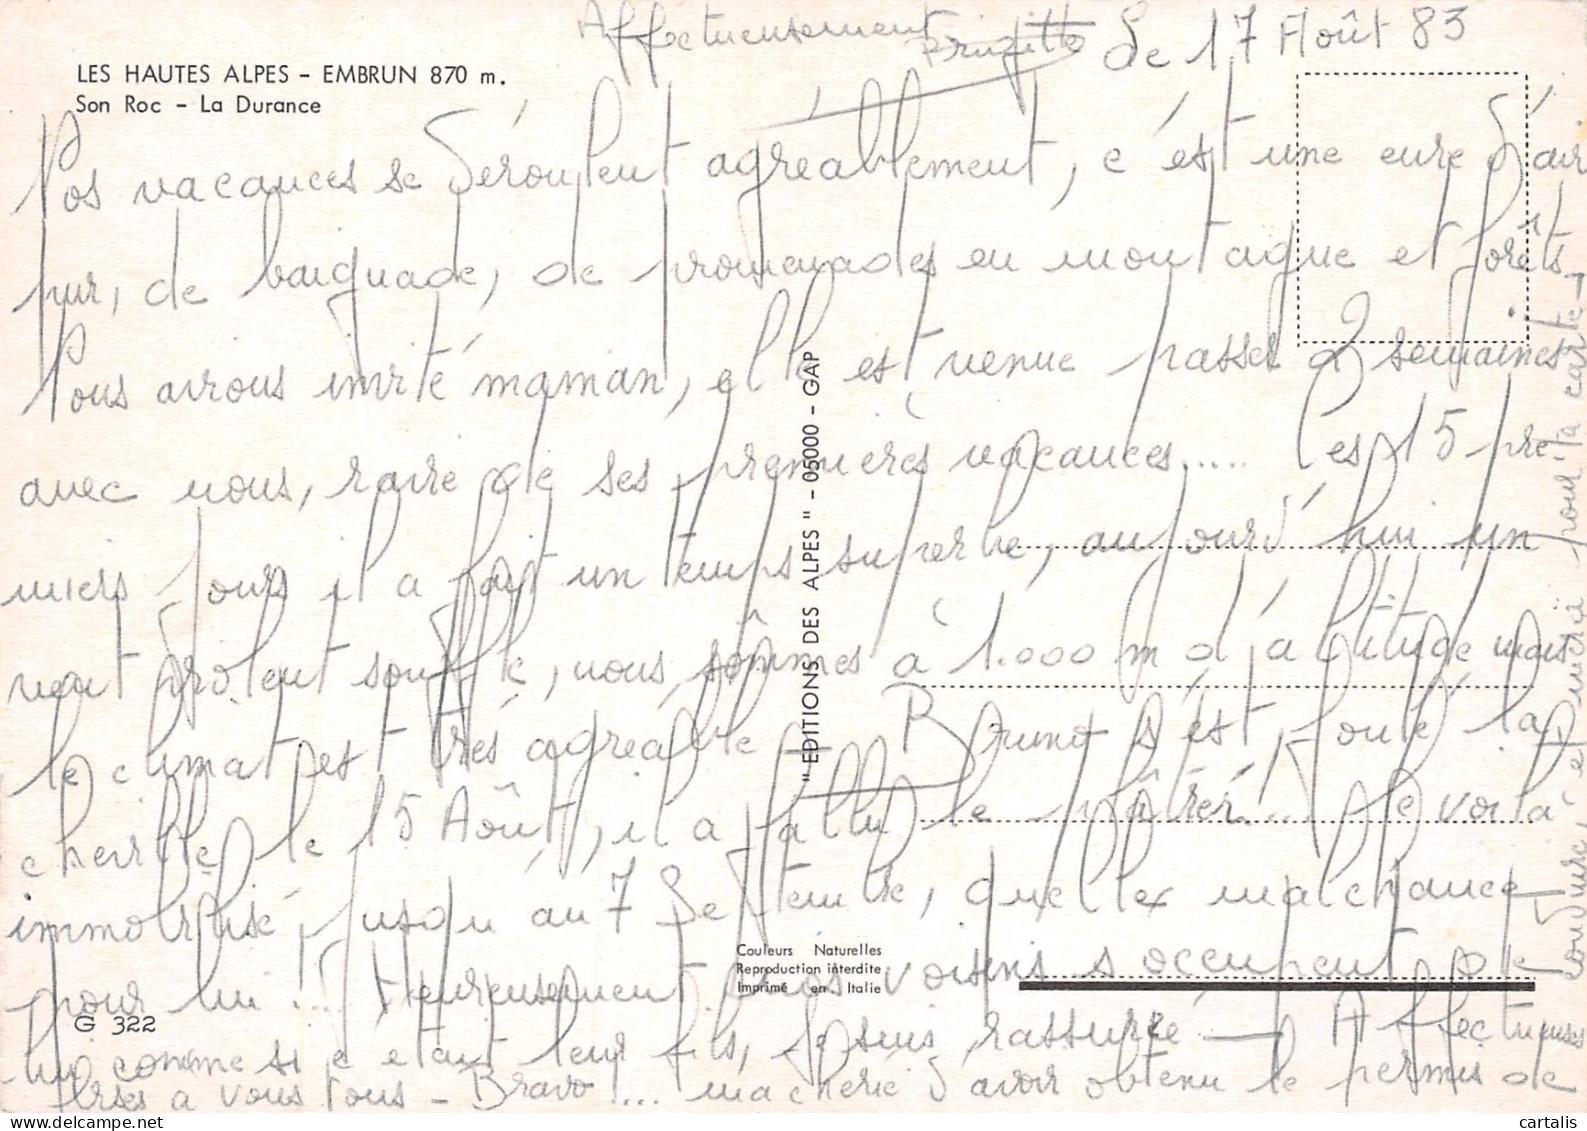 Affectueusement
Brigitte
Le 17 Août 83
LES HAUTES ALPES - EMBRUN 870 m.
Son Roc - La Durance
Nos vacances se déroulent agréablement, c'est une cure d'air
pur, de baignade, de promenades en montagne et forêts.
Nous avons invité maman, elle est venue passer 2 semaines
avec nous, ravie de ses premières vacances..... les 15 pre-
miers jours il a fait un temps superbe, aujourd'hui un
vent violent souffle, nous sommes à 1.000 m d'altitude mais
le climat est très agréable - Bruno s'est foulé la
cheville le 15 Août, il a fallu le plâtrer.... le voilà
immobilisé jusqu'au 7 Septembre, quelle malchance
pour lui.... Heureusement nos voisins s'occupent de
lui comme si c'était leur fils, je suis rassurée - Affectueuses
Bises à vous tous - Bravo.... ma chérie d'avoir obtenu le permis de
conduire, et merci pour ta carte -
"EDITIONS DES ALPES" - 05000 - GAP
Couleurs Naturelles
Reproduction interdite
Imprimé en Italie
G 322
cartalis